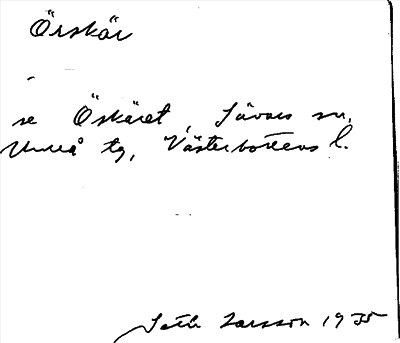 Örskär
se Öskäret, Sävars sn,
Umeå tg, Västerbottens l.
Seth Larsson 1935